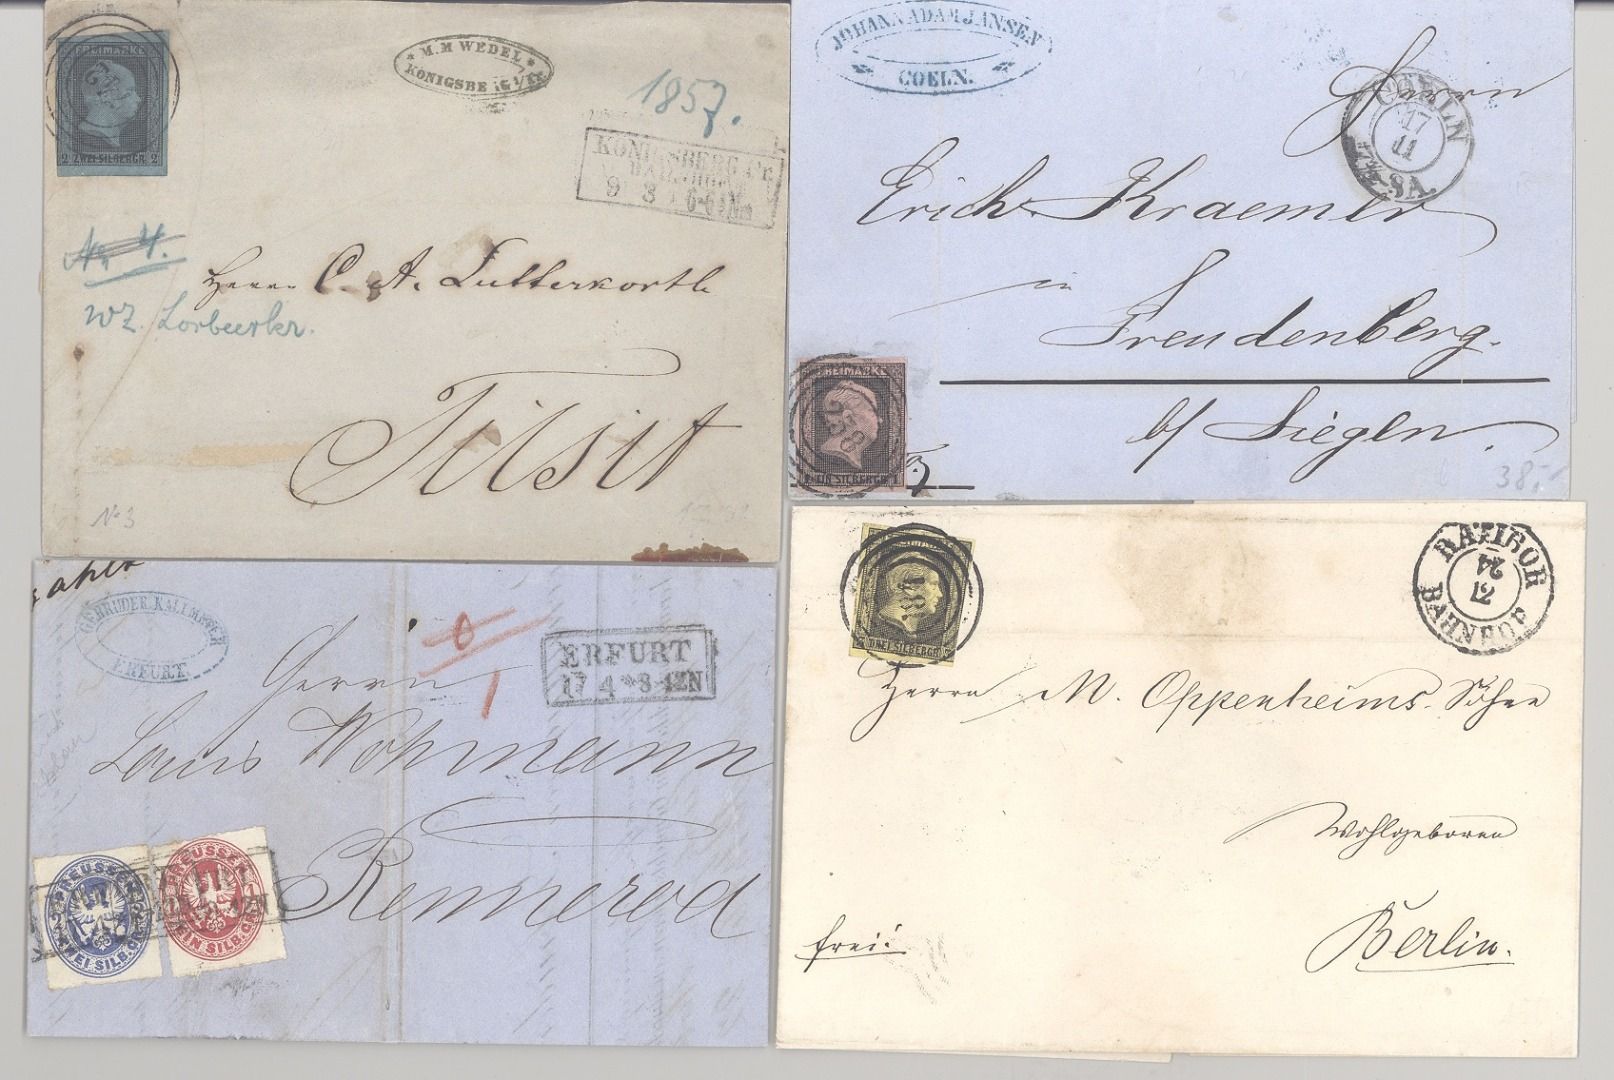 FREIMARKE
2 ZWEI SILBERGR. 2
* M.M WEDEL *
KÖNIGSBERG
1857.
KÖNIGSBERG
9 3 6-
No 4.
WZ. Lorbeerkr.
Herrn C. A. Lutterkorth
Tilsit
No 3
JOHANN ADAM JANSEN
COELN.
CÖELN
17
11
Herrn
Erich Kraemer
in
Freudenberg.
b/ Siegen.
38,-
FREIMARKE
EIN SILBERGR. 1
GEBRÜDER KALLMEYER
ERFURT.
0
1
ERFURT
17 4 * 3-4ZN
Herrn
Louis Wohmann
Rennerod
PREUSSEN
2 ZWEI SILB. GR. 2
PREUSSEN
1 EIN SILB. GR. 1
FREIMARKE
ZWEI SILBERGR.
RATIBOR
24
12
BAHNHOF
Herrn M. Oppenheims Söhne
Wohlgeboren
Berlin.
frei!